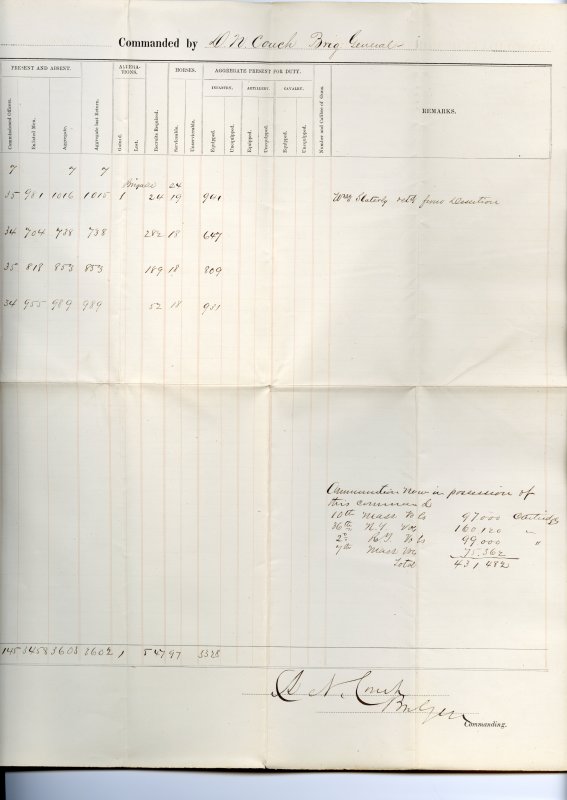 Commanded by D. N. Couch Brig General
PRESENT AND ABSENT. ALTERATIONS. HORSES. AGGREGATE PRESENT FOR DUTY. REMARKS.
INFANTRY. ARTILLERY. CAVALRY.
Commissioned Officers. Enlisted Men. Aggregate. Aggregate last Return. Gained. Lost. Recruits Required. Serviceable. Unserviceable. Equipped. Unequipped. Equipped. Unequipped. Equipped. Unequipped. Number and Calibre of Guns.
7 7 7
Brigade 24
35 981 1016 1015 1 24 19 941 from Desertion
34 704 738 738 282 18 647
35 818 853 853 189 18 809
34 955 989 989 52 18 931
Ammunition now in possession of
this command
10th Mass Vols 97000 Cartridges
36th N.Y. Vols 160,120 "
2d R.I. Vols 99000 "
7th Mass Vols 75,362
Total 431,482
145 3458 3603 3602 1 547 97 3328
D N. Couch
Brig Gen
Commanding.